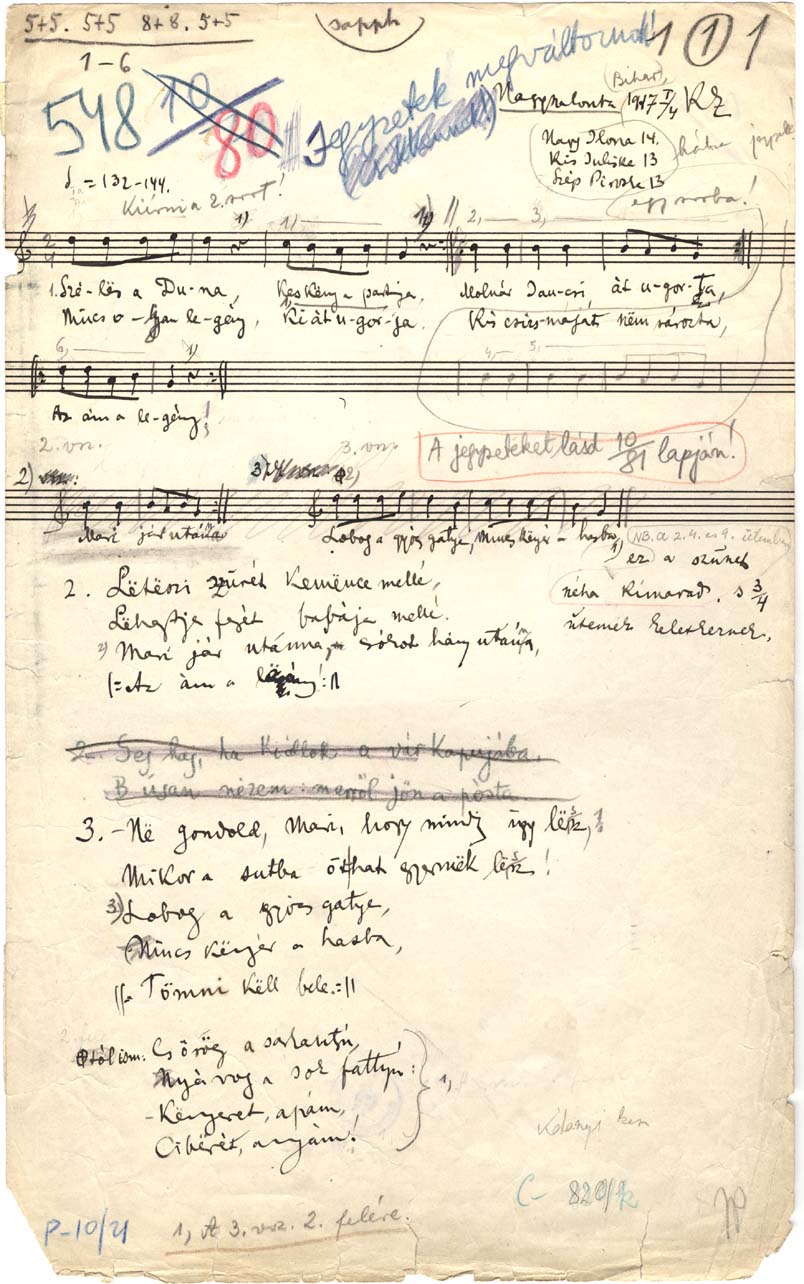 5+5. 5+5 8+8. 5+5
sapph
1 ① 1
1-6
548 10 80
Jegyzetek megváltoznak!
Nagyszalonta (Bihar) 1917 I/4 KZ
Nagy Ilona 14.
Kis Juliska 13
Szép Piroska 13
= 132-144.
Kiírni a 2. sort!
egy sorba!
1) 1) 1) 2, 3,
1. Szé-lës a Du-na, Keskëny a partja, Molnár Jan-csi, át u-gor-ja,
Nincs o-lyan le-gény, Ki át u-gor-ja. Kis csizs-máját nëm sározta,
6, 1) 4, 5,
Az ám a le-gény!
2. vsz. 3. vsz.
A jegyzeteket lásd 10/81 lapján!
2) 3) 2)
Mari jár utánna Lobog a gyócs gatye, nincs kënyér a hasba,
NB. a 2. 4. és 9. ütemben
1) ez a szünet
néha kimarad, s 3/4
ütemek keletkeznek.
2. Lëtëszi szűrét Kemënce mellé,
Lëhajtja fejét babája mellé.
2) Mari jár utánna, sókot hány utána,
|:Az ám a legény!:||
2. Jes haj, ha kiállok a vár kapujába.
Búsan nézem: merről jön a pósta.
3. -Në gondold, Mari, hogy mindig így lësz,
Mikor a sutba öt hat gyermëk lësz!
3) Lobog a gyócs gatye,
Nincs kënyér a hasba,
||: Tömni këll bele.:||
Csörög a sarkantyú,
Nyávog a sok fattyú:
-Kenyeret, apám,
Ciberét, anyám!
1,
C- 820/k
P-10/21
1, A 3. vsz. 2. felére.